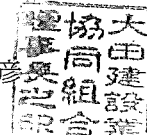 大田建設業
協同組合
理事長之印
彦